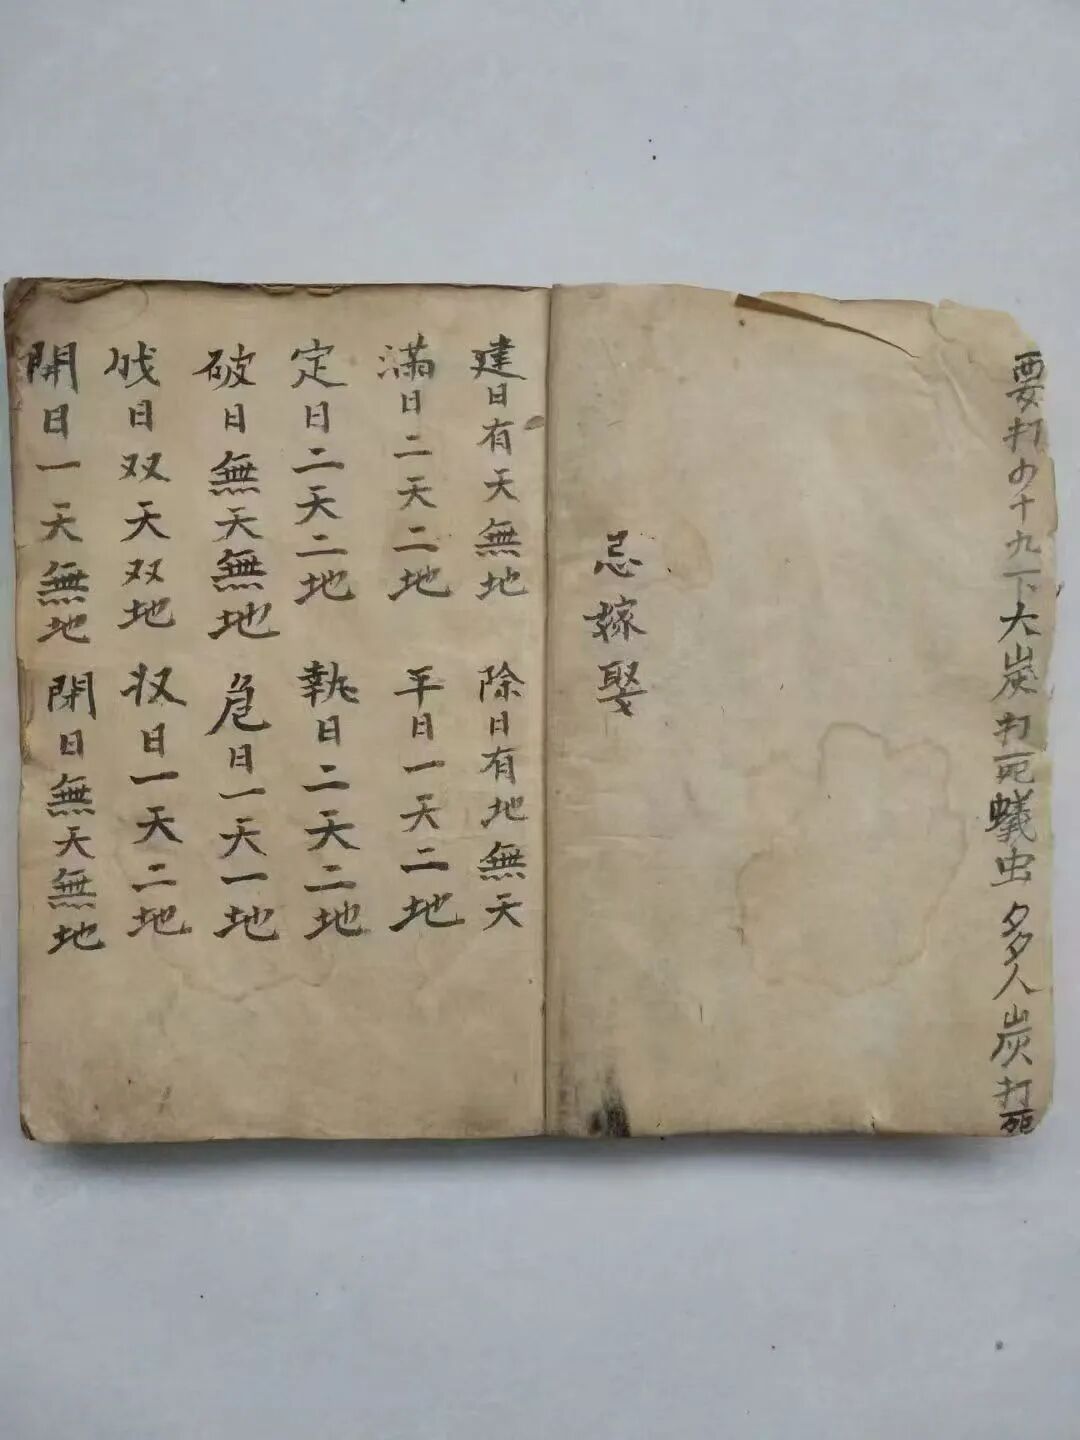 要打四十九下大炭打死蟻虫多人炭打死
忌嫁娶
建日有天無地
除日有地無天
滿日二天二地
平日一天二地
定日二天二地
執日二天二地
破日無天無地
危日一天一地
成日双天双地
收日一天二地
開日一天無地
閉日無天無地